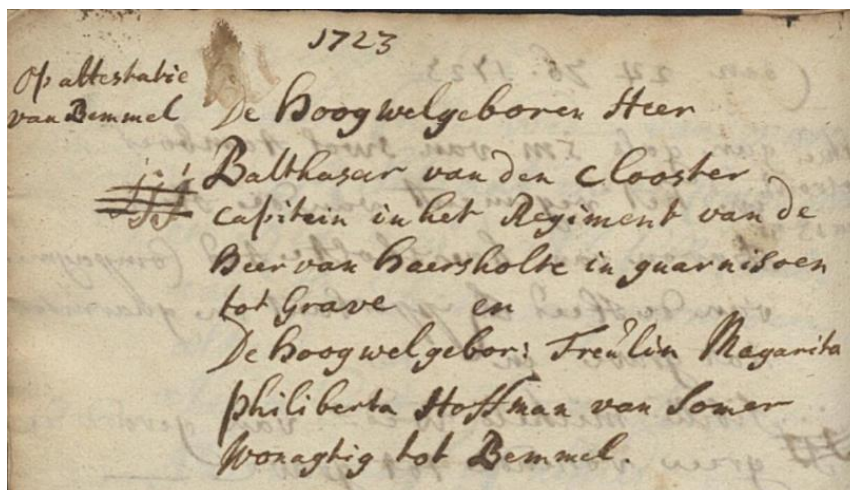 1723
Op attestatie
van Bemmel
De Hoogwelgeboren Heer
Balthasar van den Clooster
Capitein in het Regiment van de
Heer van Haersholte in guarnisoen
tot Grave en
De Hoogwelgebor: Freulin Magarita
Philiberta Hoffman van Somer
Wonagtig tot Bemmel.